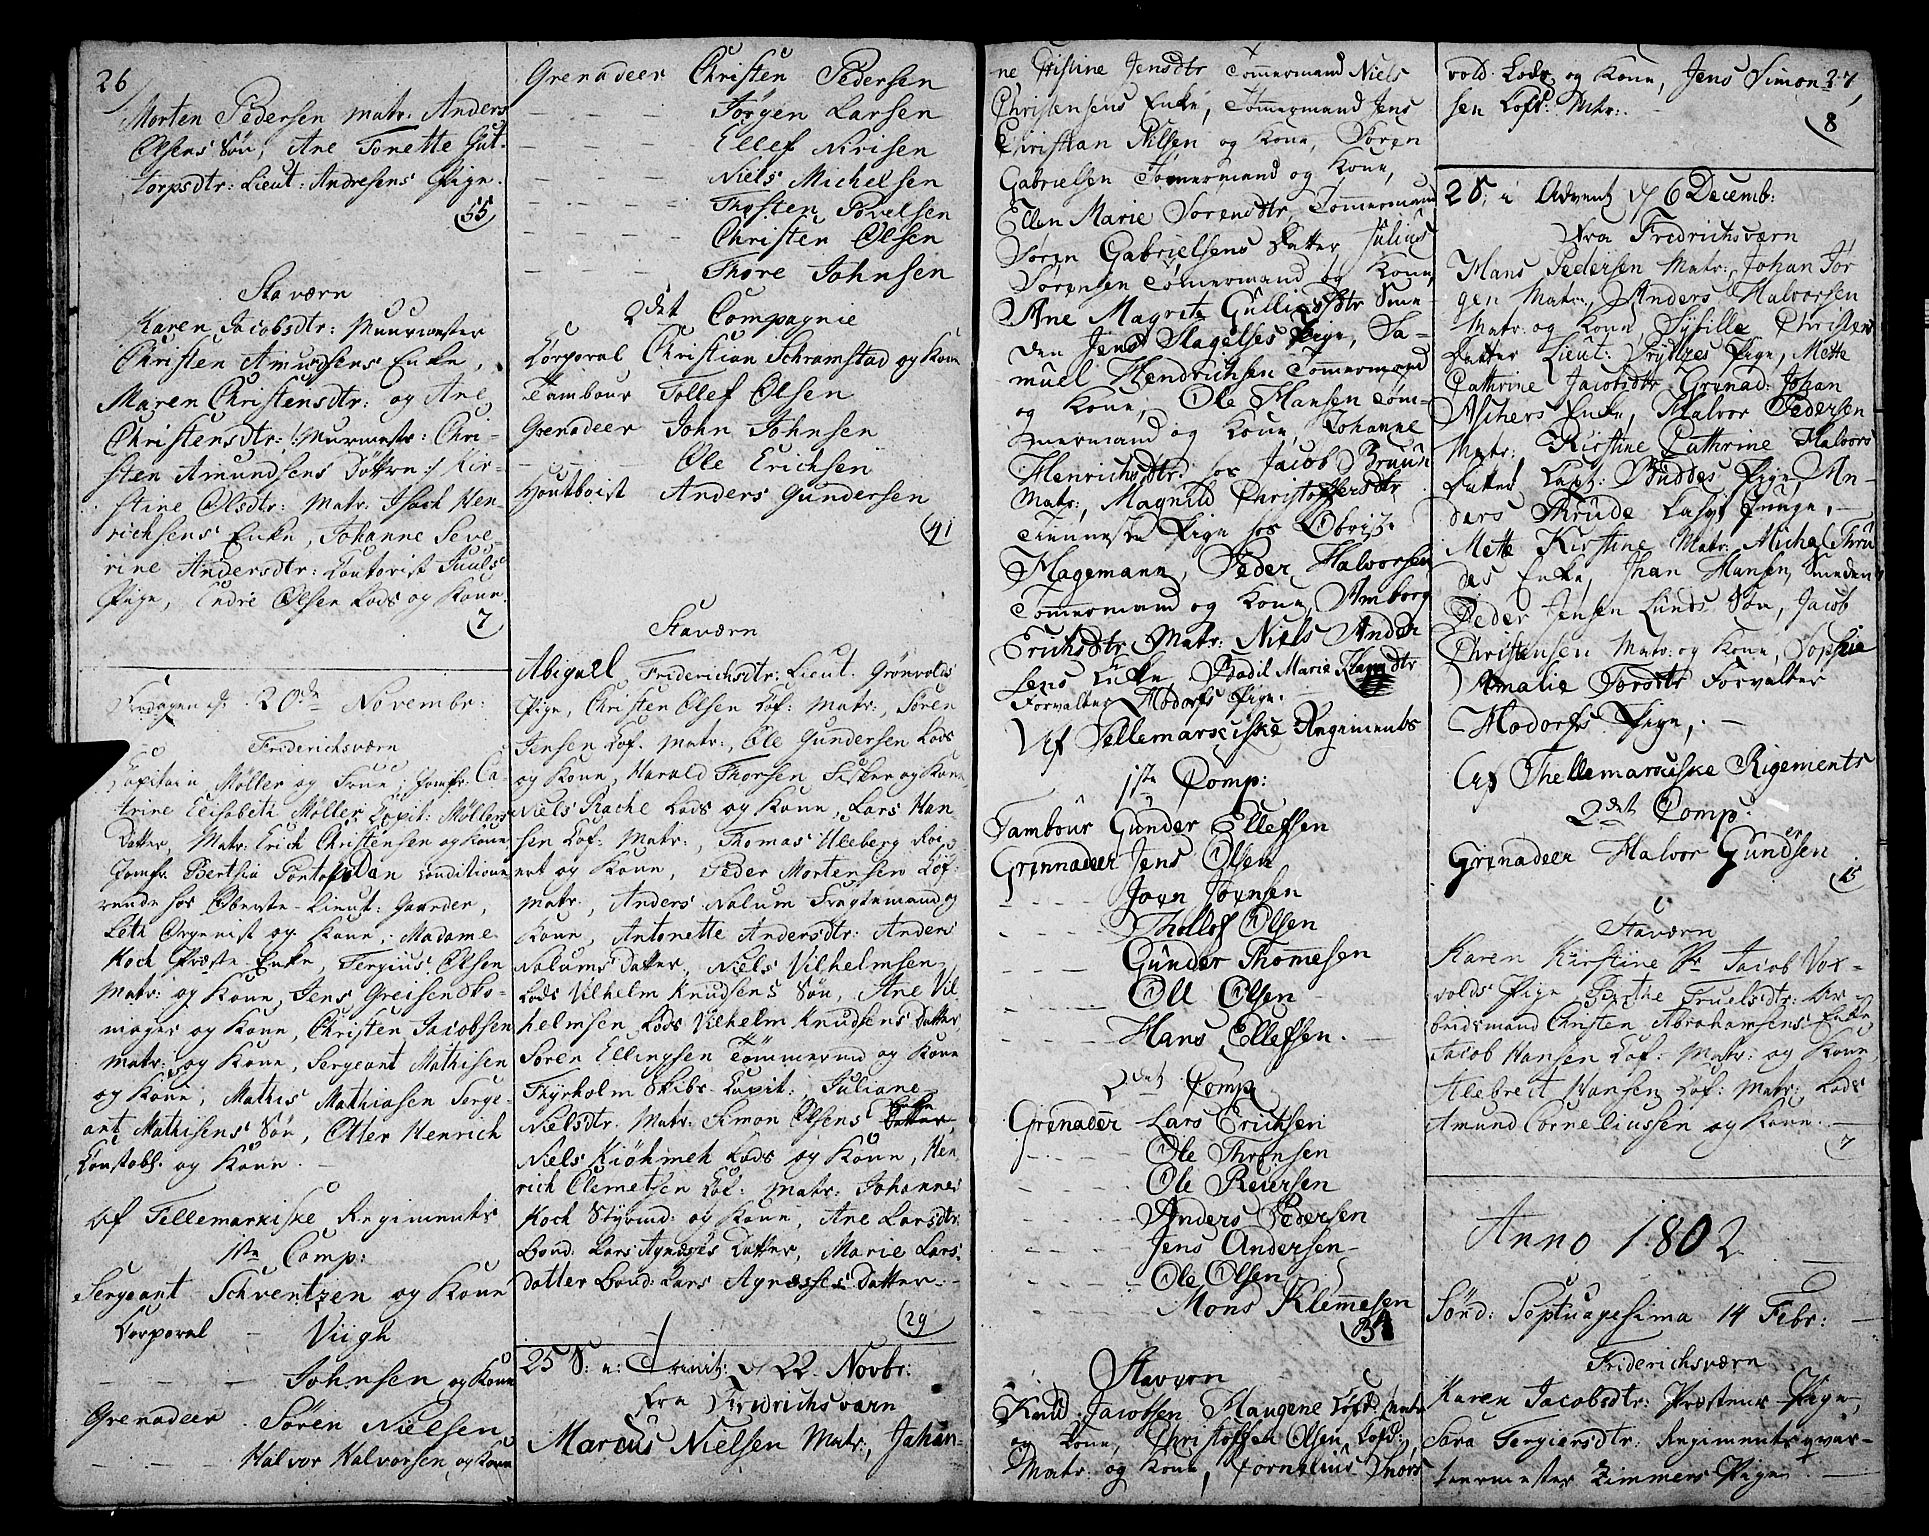 26
Morten Pedersen matr: Anders
Olsens Søn, Ane Tonette Gut-
torpsdtr: Lieut: Andresens Pige.
55
Staværn
Karen Jacobsdtr: Muurmester
Christen Amundsens Enke,
Maren Christensdtr: og Ane
Christensdtr: /: Murmestr: Chri-
sten Amundsens Døttre :/ Kir-
stine Olsdtr: Matr: Isach Hen-
richsens Enke, Johanne Seve-
rine Andersdtr: Contorist Juuls
Pige, Endre Olsen Lods og Kone.
7
Fredagen d. 20de Novembr:
Friderichsværn
Capitain Møller og Frue, Jomfr: Ca-
trine Elisabeth Møller Capit: Møllers
Datter, Matr: Erich Christensen og Kone
Jomfr. Berthia Pontoppidan Conditione-
rende hos Oberste-Lieut: Gaarder,
Leth Organist og Kone, Madame
Koch Præste-Enke, Tergius Olsen
Matr: og Kone, Jens Greisen Sko-
mager og Kone, Christen Jacobsen
matr: og Kone, Sergeant Mathisen
og Kone, Mathis Mathiasen Serge-
ant Mathisens Søn, Otter Henrich
Constabl. og Kone.
af Tellemarkiske Regiments
1ste Comp:
Sergeant Schventzen og Kone
Corporal - Viigh
- - - Johnsen og Kone
Grenadeer Sören Nielsen
- - - Halvor Halvorsen og Kone
Grenadeer Christen Pedersen
- - - Jörgen Larsen
- - - Ellef Nirisen
- - - Niels Michelsen
- - - Thosten Povelsen
- - - Christen Olsen
- - - Thore Johnsen
2det Compagnie
Corporal Christian Schramstad og Kone
Tambour Tollef Olsen
Grenadeer John Johnsen
- - Ole Erichsen
Houtboist Anders Gundersen
41
Staværn
Abigaell Friderichsdtr: Lieut. Grönvolds
Pige, Christen Olsen Lof: Matr:, Sören
Jensen Lof. Matr:, Ole Gundersen Lods
og Kone, Harald Thorsen Fisker og Kone
Niels Rache Lods og Kone, Lars Han-
sen Lof: Matr:, Thomas Heeberg
og Kone, Peder Mortensen Lof:
matr:, Anders Nalum Fragtemand og
Kone, Antonette Andersdtr: Anders
Nalums Datter, Niels Vilhelmsen
Lods Vilhelm Knudsens Søn, Ane Vil-
helmsen Lods Vilhelm Knudsens Datter
Sören Ellingsen Tömmermd og Kone
Thyrholm Skibs Capit:, Juliane
Nielsdtr. Matr: Simon Olsens Enke
Niels Kiöhmeh Lods og Kone, Hen-
rich Clemetsen Lof: matr: Johannes
Koch Styrmd: og Kone, Ane Larsdtr
Bond: Lars Agnæses Datter, Marie Lars-
datter Bond: Lars Agnæsses Datter. -
29
25 S: n: Trinit: d 22 Novbr:
Fra Fredrichsværn
Marcus Nielsen Matr:, Johan-
ne Cristine Jensdtr Tømmermand Niels
Christensens Enke, Tømmermand Jens
Christian Nilsen og Kone, Søren
Gabrielsen Tømmermand og Kone,
Ellen Marie Sørensdtr, Tømmermand
Søren Gabrielsens Datter Julius
Sørensen Tømmermand og Kone,
Ane Magrete Gulliesdtr Sme-
den Jens Slagelses Pige, Sa-
muel Hendrichsen Tømmermand
og Kone, Ole Hansen Tøm-
mermand og Kone, Johanne
Henrichsdtr hos Jacob Bruun
Matr:, Magnild Christoffersdtr
Tienneste Pige hos Obrist
Hagemann, Peder Halvorsen
Tømmermand og Kone, Amborg
Erichsdtr Matr: Niels Ander-
sens Enke, Bodil Marie Hansdtr
Forvalter Modorfs Pige.
Af Tellemarkiske Regiments
1ste Comp:
Tambour Gunder Ellefsen
Grennadeer Jens Olsen
- - - Joen Joensen
- - - Thollof Olsen
- - - Gunder Thommesen
- - - Oll Olsen
- - - Hans Ellefsen.
2det Comp
Grenadeer Lars Erichsen
- - - Ole Thronsen
- - - Ole Reiersen
- - - Anders Pedersen
- - - Jens Andersen
- - - Ole Olsen
- - - Mons Klemmesen
Stavern
Knud Jacobsen Haugene Lofd: Matr
og Kone, Christoffer Olsen Lofd:
Matr: og Kone, Cornelius Thors
vold. Lods og Kone, Jens Simon-
sen Lofd: Mtr: -
27
8
2 S: i Advent d 6 Decemb:
Fra Fredrichsværn
Hans Pedersen Matr:, Johan Jør-
gen Matr:, Anders Halvorsen
Matr: og Kone, Sÿfille Christens
Datter Lieut: Pige, Mette
Cathrine Jacobsdtr Grenad: Johan
Aschers Enke, Halvor Pedersen
Matr: Kirstine Cathrine Halvors
Datter Capt: Buddes Pige, An-
ders Thrude
Mette Kirstine Matr: Michel Thru-
des Enke, Jhan Hansen Smeden
Peder Jensen Lunds Søn, Jacob
Christensen Matr: og Kone, Sophie
Amalie Torsdtr Forvalter
Modorfs Pige, -
Af Thellemarkiske Rigements
2det Comp:
Grenadeer Halvor Gundersen
15
Stavern
Karen Kirstine Jacob Vox-
volds Pige Birthe Truelsdtr: Ar-
beidsmand Christen Abrahamsens Enke
Jacob Hansen Lof: Matr: og Kone,
Hlebreit Hansen Lof: Matr: Lods
Amund Corneliussen og Kone. -
7
Anno 1802
Sønd: Septuagesima 14 Febr: -
Friderichsværn
Karen Jacobsdtr: Præstens Pige,
Sara Tergiersdtr: Regimentsqvar-
teermester Zimmers Pige. -